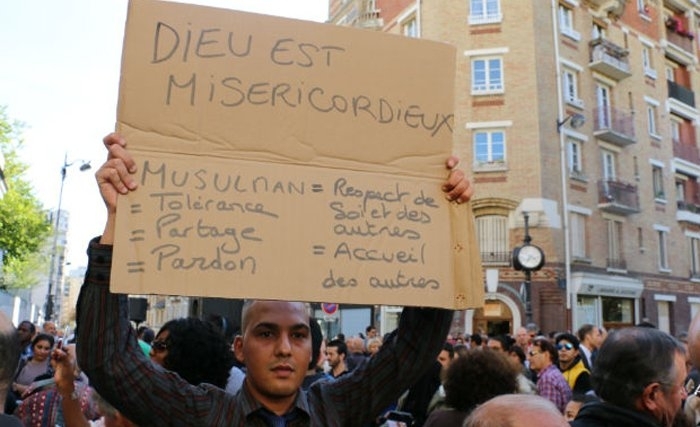 DIEU EST
MISERICORDIEUX
MUSULMAN
= Tolérance
= Partage
= Pardon
= Respect de
Soi et des
autres
= Accueil
des autres